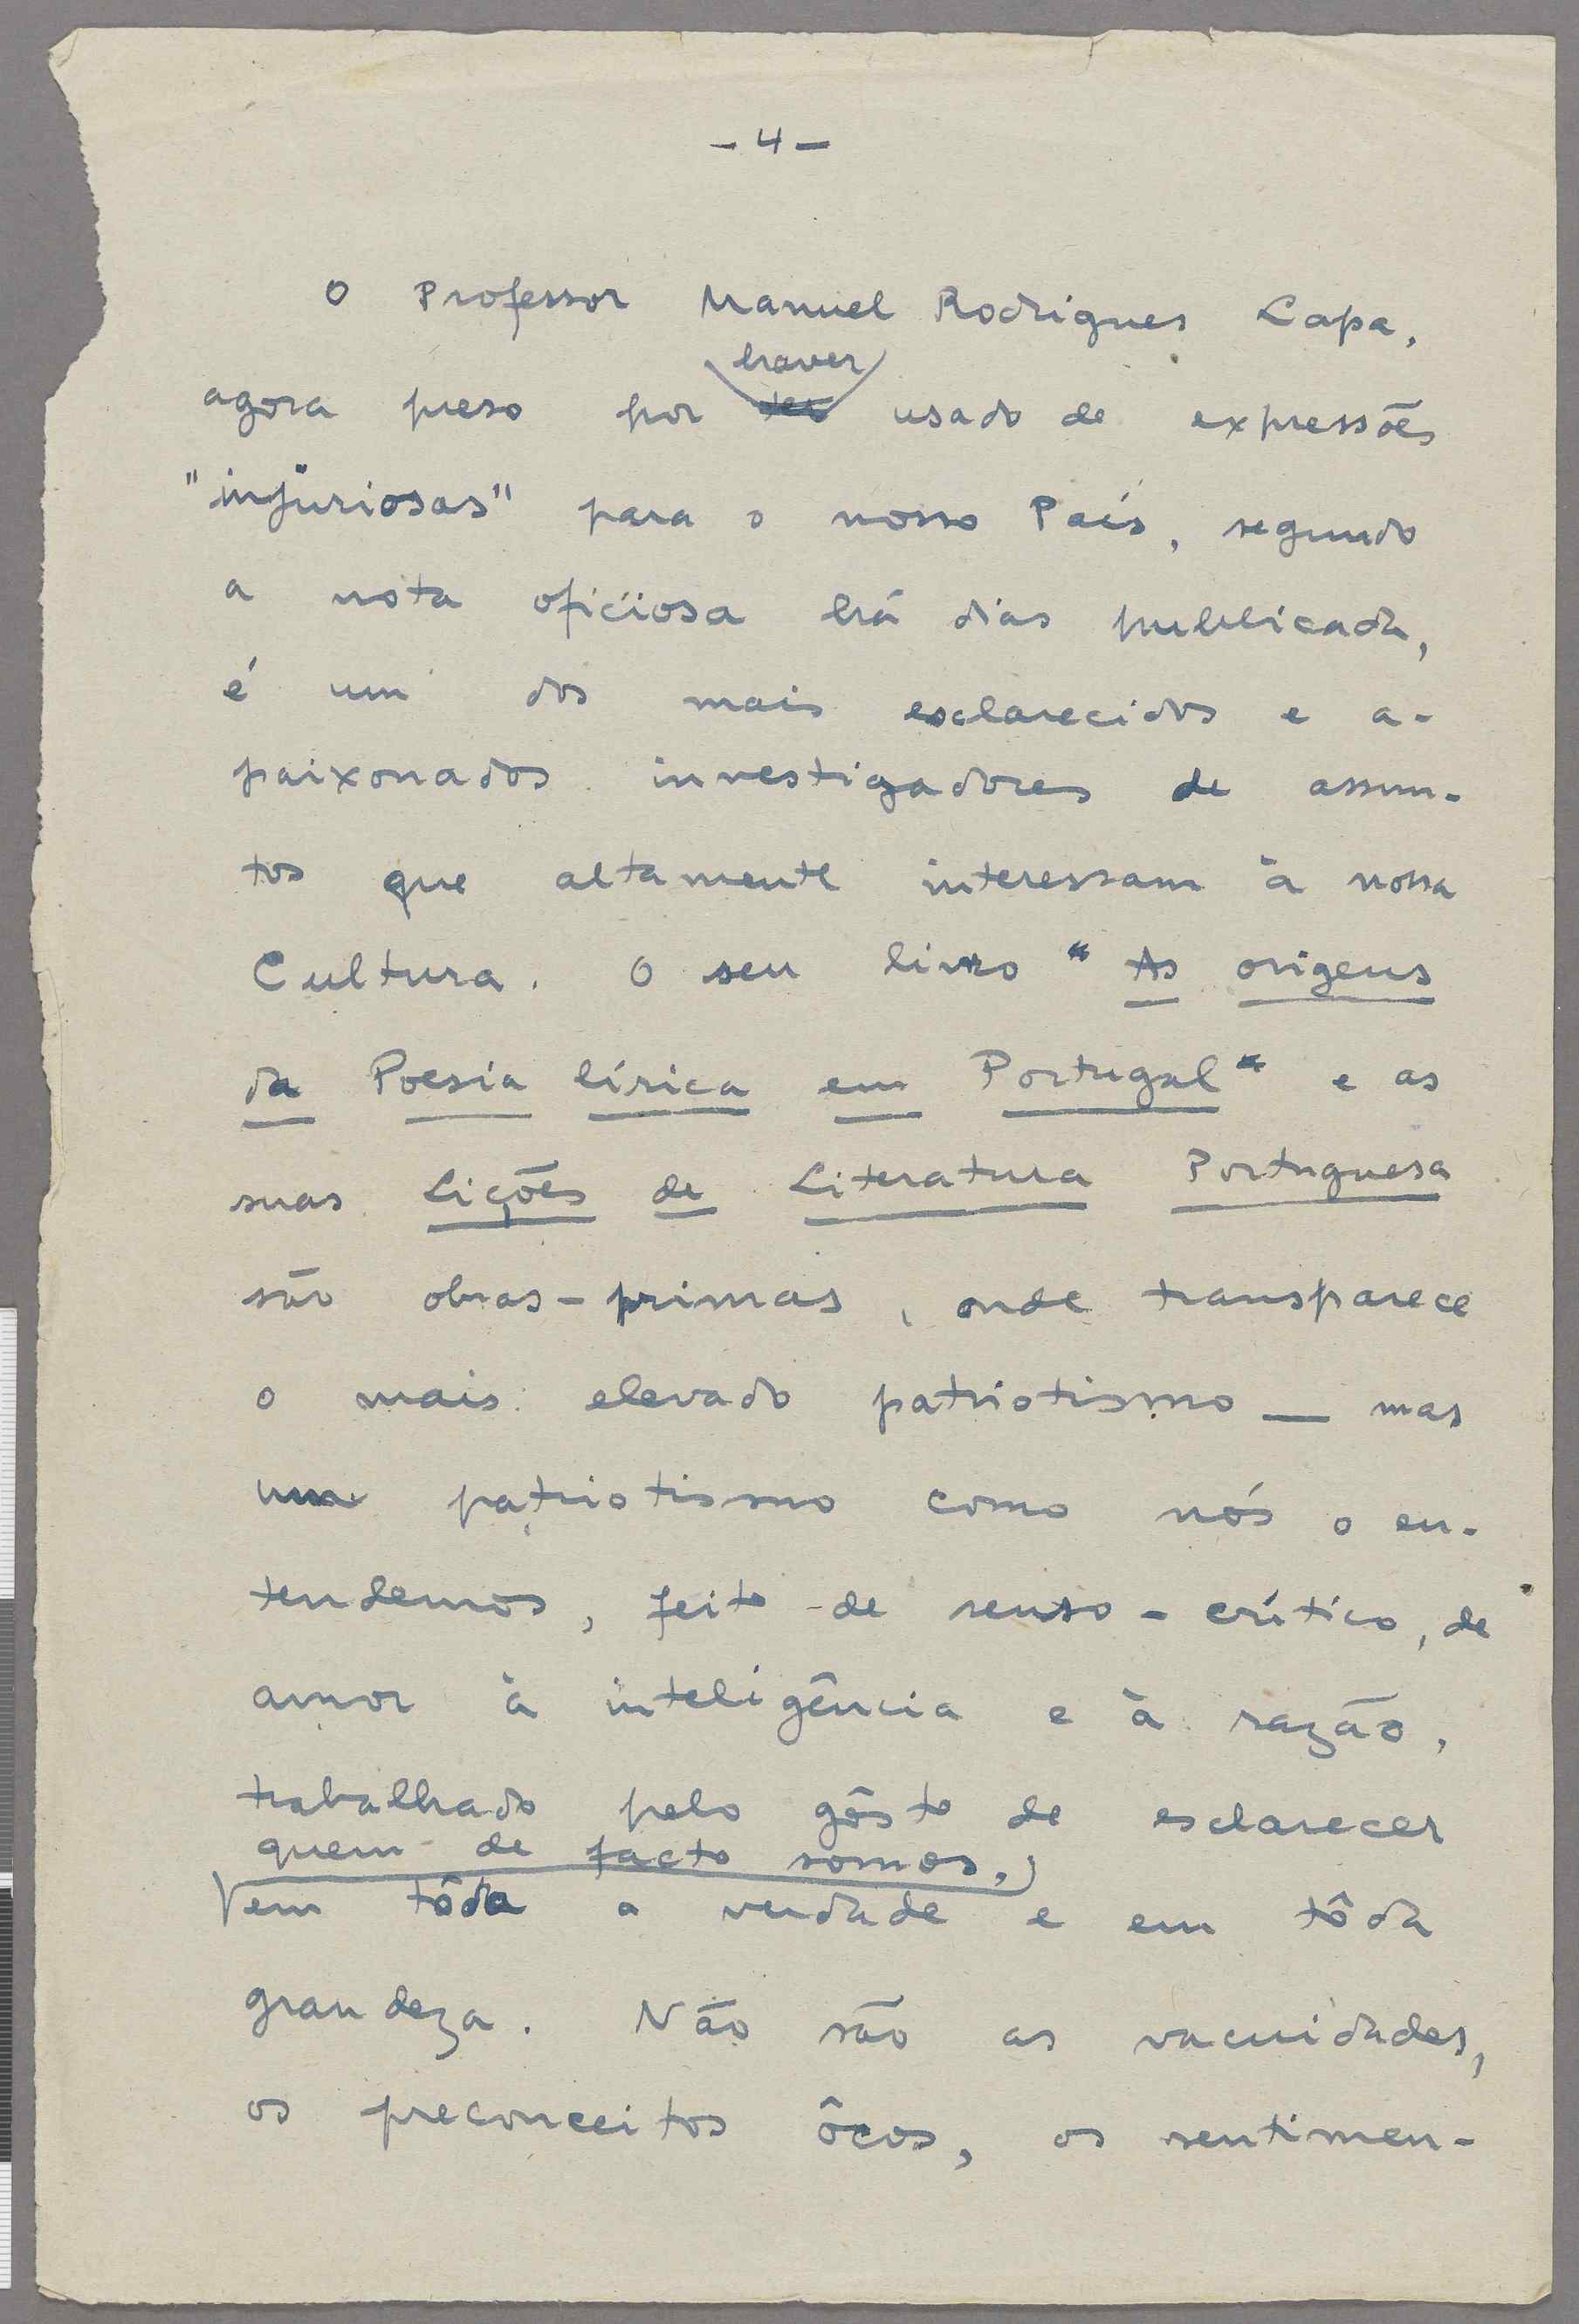 - 4 -
O Professor Manuel Rodrigues Lapa,
haver
agora preso por ter usado de expressões
"injuriosas" para o nosso País, segundo
a nota oficiosa há dias publicada,
é um dos mais esclarecidos e a-
paixonados investigadores de assun-
tos que altamente interessam à nossa
Cultura. O seu livro "As origens
da Poesia lírica em Portugal" e as
suas Lições de Literatura Portuguesa
são obras-primas, onde transparece
o mais elevado patriotismo — mas
um patriotismo como nós o en-
tendemos, feito de senso-crítico, de
amor à inteligência e à razão,
trabalhado pelo gôsto de esclarecer
quem de facto somos,
em tôda a verdade e em tôda
grandeza. Não são as vacuidades,
os preconceitos ôcos, os sentimen-